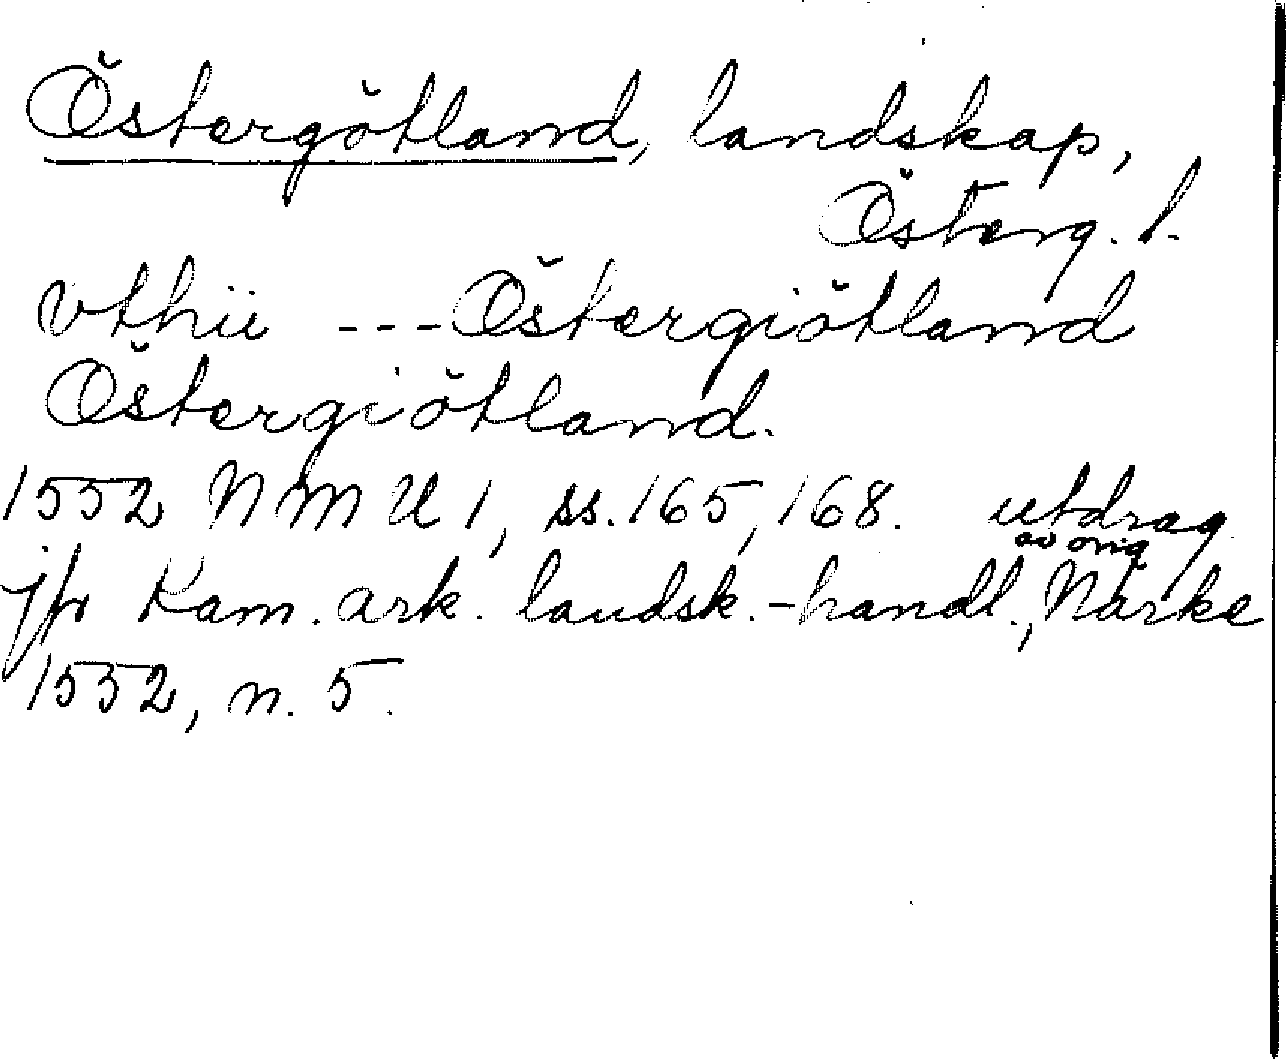 Östergötland, landskap,
Österg. l.
vthii ---Östergiötland
Östergiötland.
1552 NMU 1, ss. 165, 168. utdrag
av orig
jfr Kam. ark. landsk.-handl., Närke
1552, n. 5.